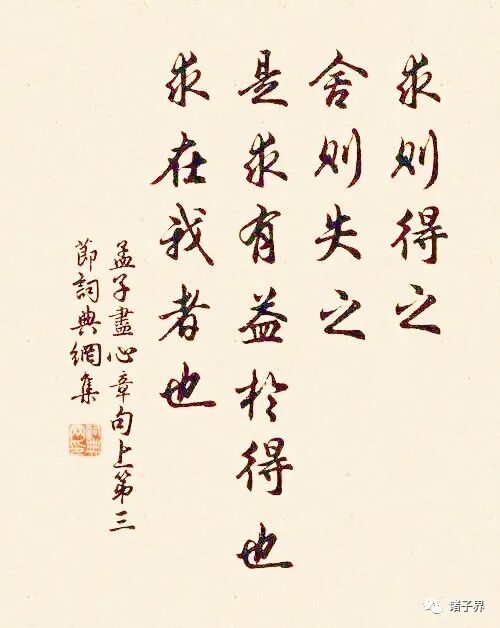 求则得之
舍则失之
是求有益於得也
求在我者也
孟子盡心章句上第三
節詞典網集
诸子界